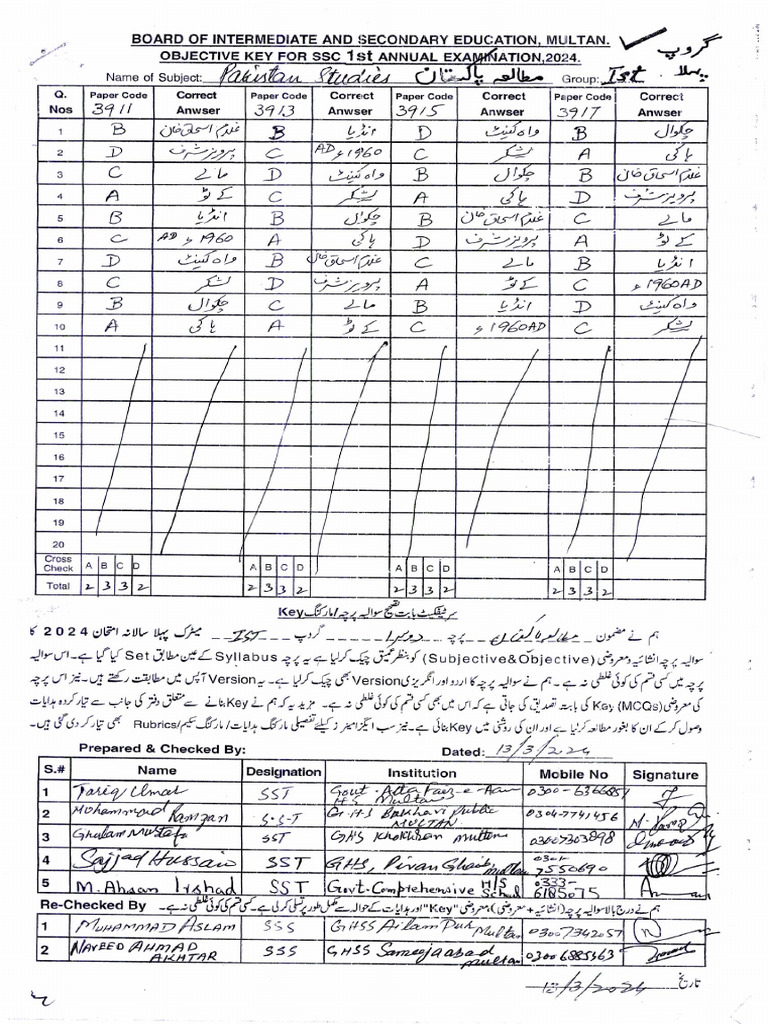 BOARD OF INTERMEDIATE AND SECONDARY EDUCATION, MULTAN.
OBJECTIVE KEY FOR SSC 1st ANNUAL EXAMINATION,2024.
گروپ
پہلا
Name of Subject: Pakistan Studies مطالعہ پاکستان Group: Ist
Q. Nos Paper Code 3911 Correct Anwser Paper Code 3913 Correct Anwser Paper Code 3915 Correct Anwser Paper Code 3917 Correct Anwser
1 B غلام اسحاق خان B انڈیا D واہ کینٹ B چکوال
2 D پرویز مشرف C 1960ء AD C لشکر A ہاکی
3 C مالے D واہ کینٹ B چکوال B غلام اسحاق خان
4 A کے ٹو C لشکر A ہاکی D پرویز مشرف
5 B انڈیا B چکوال B غلام اسحاق خان C مالے
6 C 1960ء AD A ہاکی D پرویز مشرف A کے ٹو
7 D واہ کینٹ B غلام اسحاق خان C مالے B انڈیا
8 C لشکر D پرویز مشرف A کے ٹو C 1960AD ء
9 B چکوال C مالے B انڈیا D واہ کینٹ
10 A ہاکی A کے ٹو C 1960AD ء C لشکر
11
12
13
14
15
16
17
18
19
20
Cross Check A B C D A B C D A B C D A B C D
Total 2 3 3 2 2 3 3 2 2 3 3 2 2 3 3 2
سرٹیفکیٹ بابت تصحیح سوالیہ پرچہ/مارکنگ Key
ہم نے مضمون مطالعہ پاکستان پرچہ گروپ IST میٹرک پہلا سالانہ امتحان 2024 کا
سوالیہ پرچہ انشائیہ ومعروضی (Subjective&Objective) کو بنظر عمیق چیک کر لیا ہے یہ پرچہ Syllabus کے عین مطابق Set کیا گیا ہے۔ اس سوالیہ
پرچہ میں کسی قسم کی کوئی غلطی نہ ہے۔ ہم نے سوالیہ پرچہ کا اردو اور انگریزی Version بھی چیک کر لیا ہے۔ یہ Version آپس میں مطابقت رکھتے ہیں۔ نیز اس پرچہ
کی معروضی (MCQs) Key کی بابت تصدیق کی جاتی ہے کہ اس میں بھی کسی قسم کی کوئی غلطی نہ ہے۔ مزید یہ کہ ہم نے Key بنانے سے متعلق دفتر کی جانب سے تیار کردہ ہدایات
وصول کر کے ان کا بغور مطالعہ کر لیا ہے اور ان کی روشنی میں Key بنائی ہے۔ نیز سب ایگزامینر ز کیلئے تفصیلی مارکنگ ہدایات/مارکنگ سکیم/Rubrics بھی تیار کر دی گئی ہیں۔
Prepared & Checked By: Dated: 13/3/2024
S.# Name Designation Institution Mobile No Signature
1 Tariq Umar SST Govt. H S Multan 0300-6366851
2 Mohammad Ramzan S.S.T G.H.S Bukhari Public MULTAN 0304-7741456
3 Ghulam Mustafa SST GHS Khokhran multan 03007303898
4 Sajjad Hussain SST GHS, Piran Ghaib multan 0301-7550690
5 M. Ahsan Irshad SST Govt. Comprehensive H/S School 0333-6185075
Re-Checked By ہم نے درج بالا سوالیہ پرچہ (انشائیہ + معروضی)/معروضی "Key" اور ہدایات کے حوالہ سے مکمل طور پر تسلی کر لی ہے۔ کسی قسم کی کوئی غلطی نہ ہے۔
1 MUHAMMAD ASLAM SSS GHSS Ailam Pur Multan 03007342057
2 NAVEED AHMAD AKHTAR SSS GHSS Sameejaabad multan 03006885363
13/3/2024 تاریخ